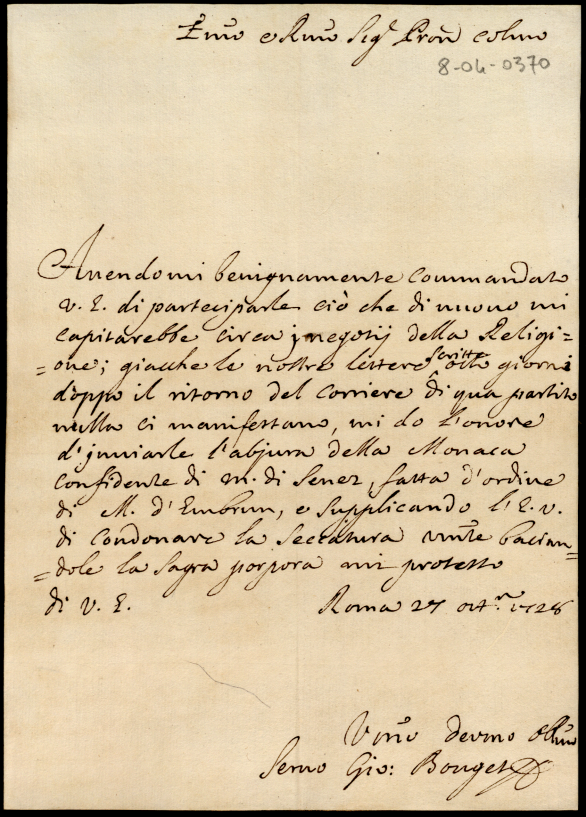 Emo e Rmo Sig.r Pron colmo
8-04-0370
Auendomi benignamente commandato
V. E. di participarle ciò che di nuouo mi
capitarebbe circa j negotij della Religi=
=one; giacche le nostre lettere scritte otto giorni
doppo il ritorno del corriere di qua partito
nulla ci manifestano, mi do l'onore
d'inuiarle l'abjura della Monaca
confidente di M. di Senez, fatta d'ordine
di M. d'Embrun, e supplicando l'E. V.
di condonare la seccatura umte bacian=
=dole la sagra porpora mi protesto
di V. E. Roma 27 ott.re 1728
Vmo deumo obbmo
Seruo Gio: Bouget